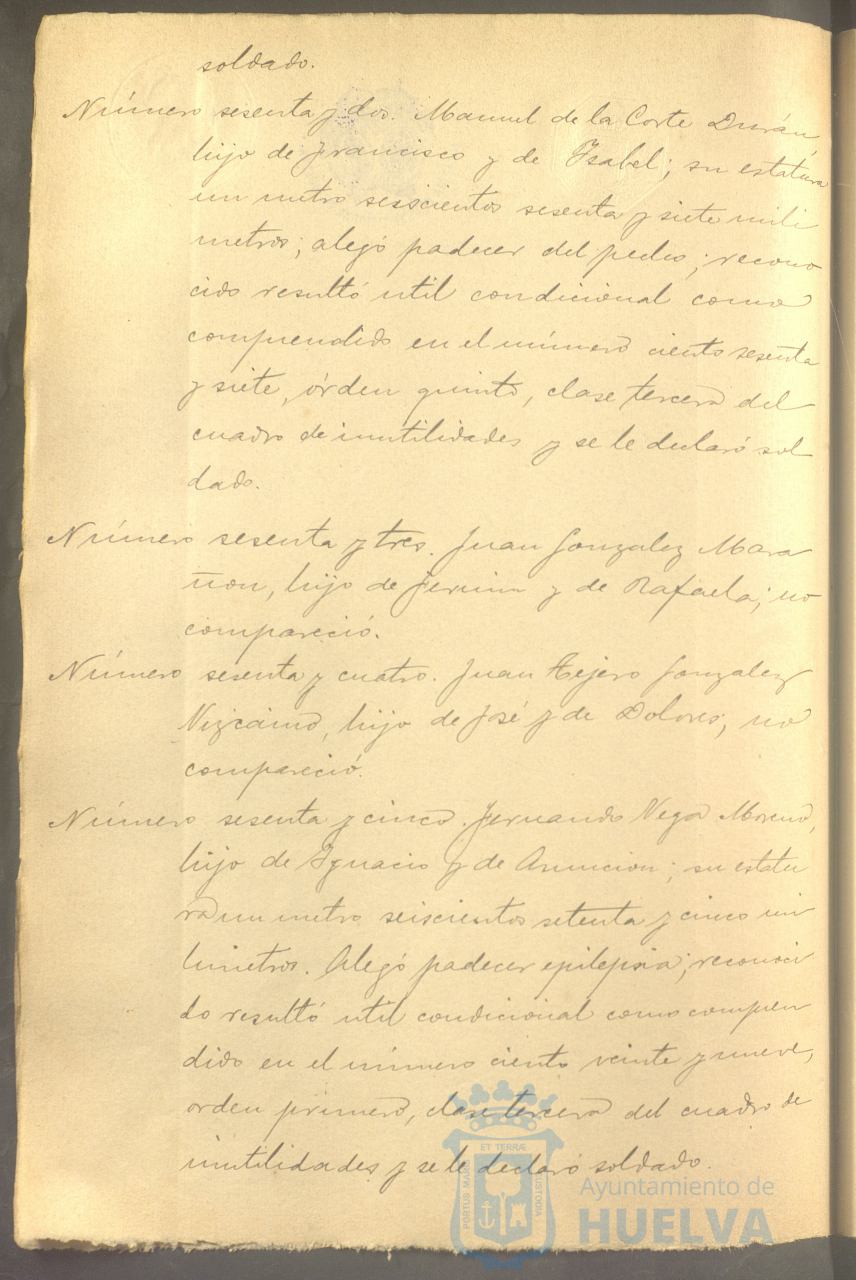 soldado.
Número sesenta y dos. Manuel de la Corte Durán,
hijo de Francisco y de Ysabel; su estatura
un metro seiscientos sesenta y siete mili
metros; alegó padecer del pecho; recono
cido resultó util condicional como
comprendido en el número ciento sesenta
y siete, órden quinto, clase tercera del
cuadro de inutilidades y se le declaró sol
dado.
Número sesenta y tres. Juan Gonzalez Mara
ñon, hijo de Fermin y de Rafaela; no
compareció.
Número sesenta y cuatro. Juan Tejero Gonzalez
Vizcaino, hijo de José y de Dolores; no
compareció.
Número sesenta y cinco. Fernando Vega Moreno,
hijo de Ygnacio y de Asuncion; su estatu
ra un metro seiscientos setenta y cinco mi
limetros. Alegó padecer epilepsia; reconoci
do resultó util condicional como compren
dido en el número ciento veinte y nueve,
orden primero, clase tercera del cuadro de
inutilidades y se le declaró soldado.
ET TERRÆ
PORTUS MARIS
CUSTODIA
Ayuntamiento de
HUELVA